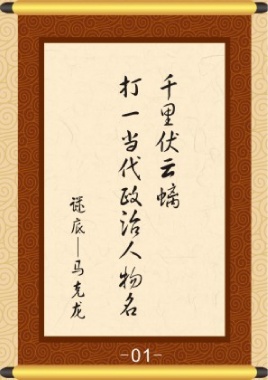 千里伏云螭
打一当代政治人物名
谜底——马克龙
-01-